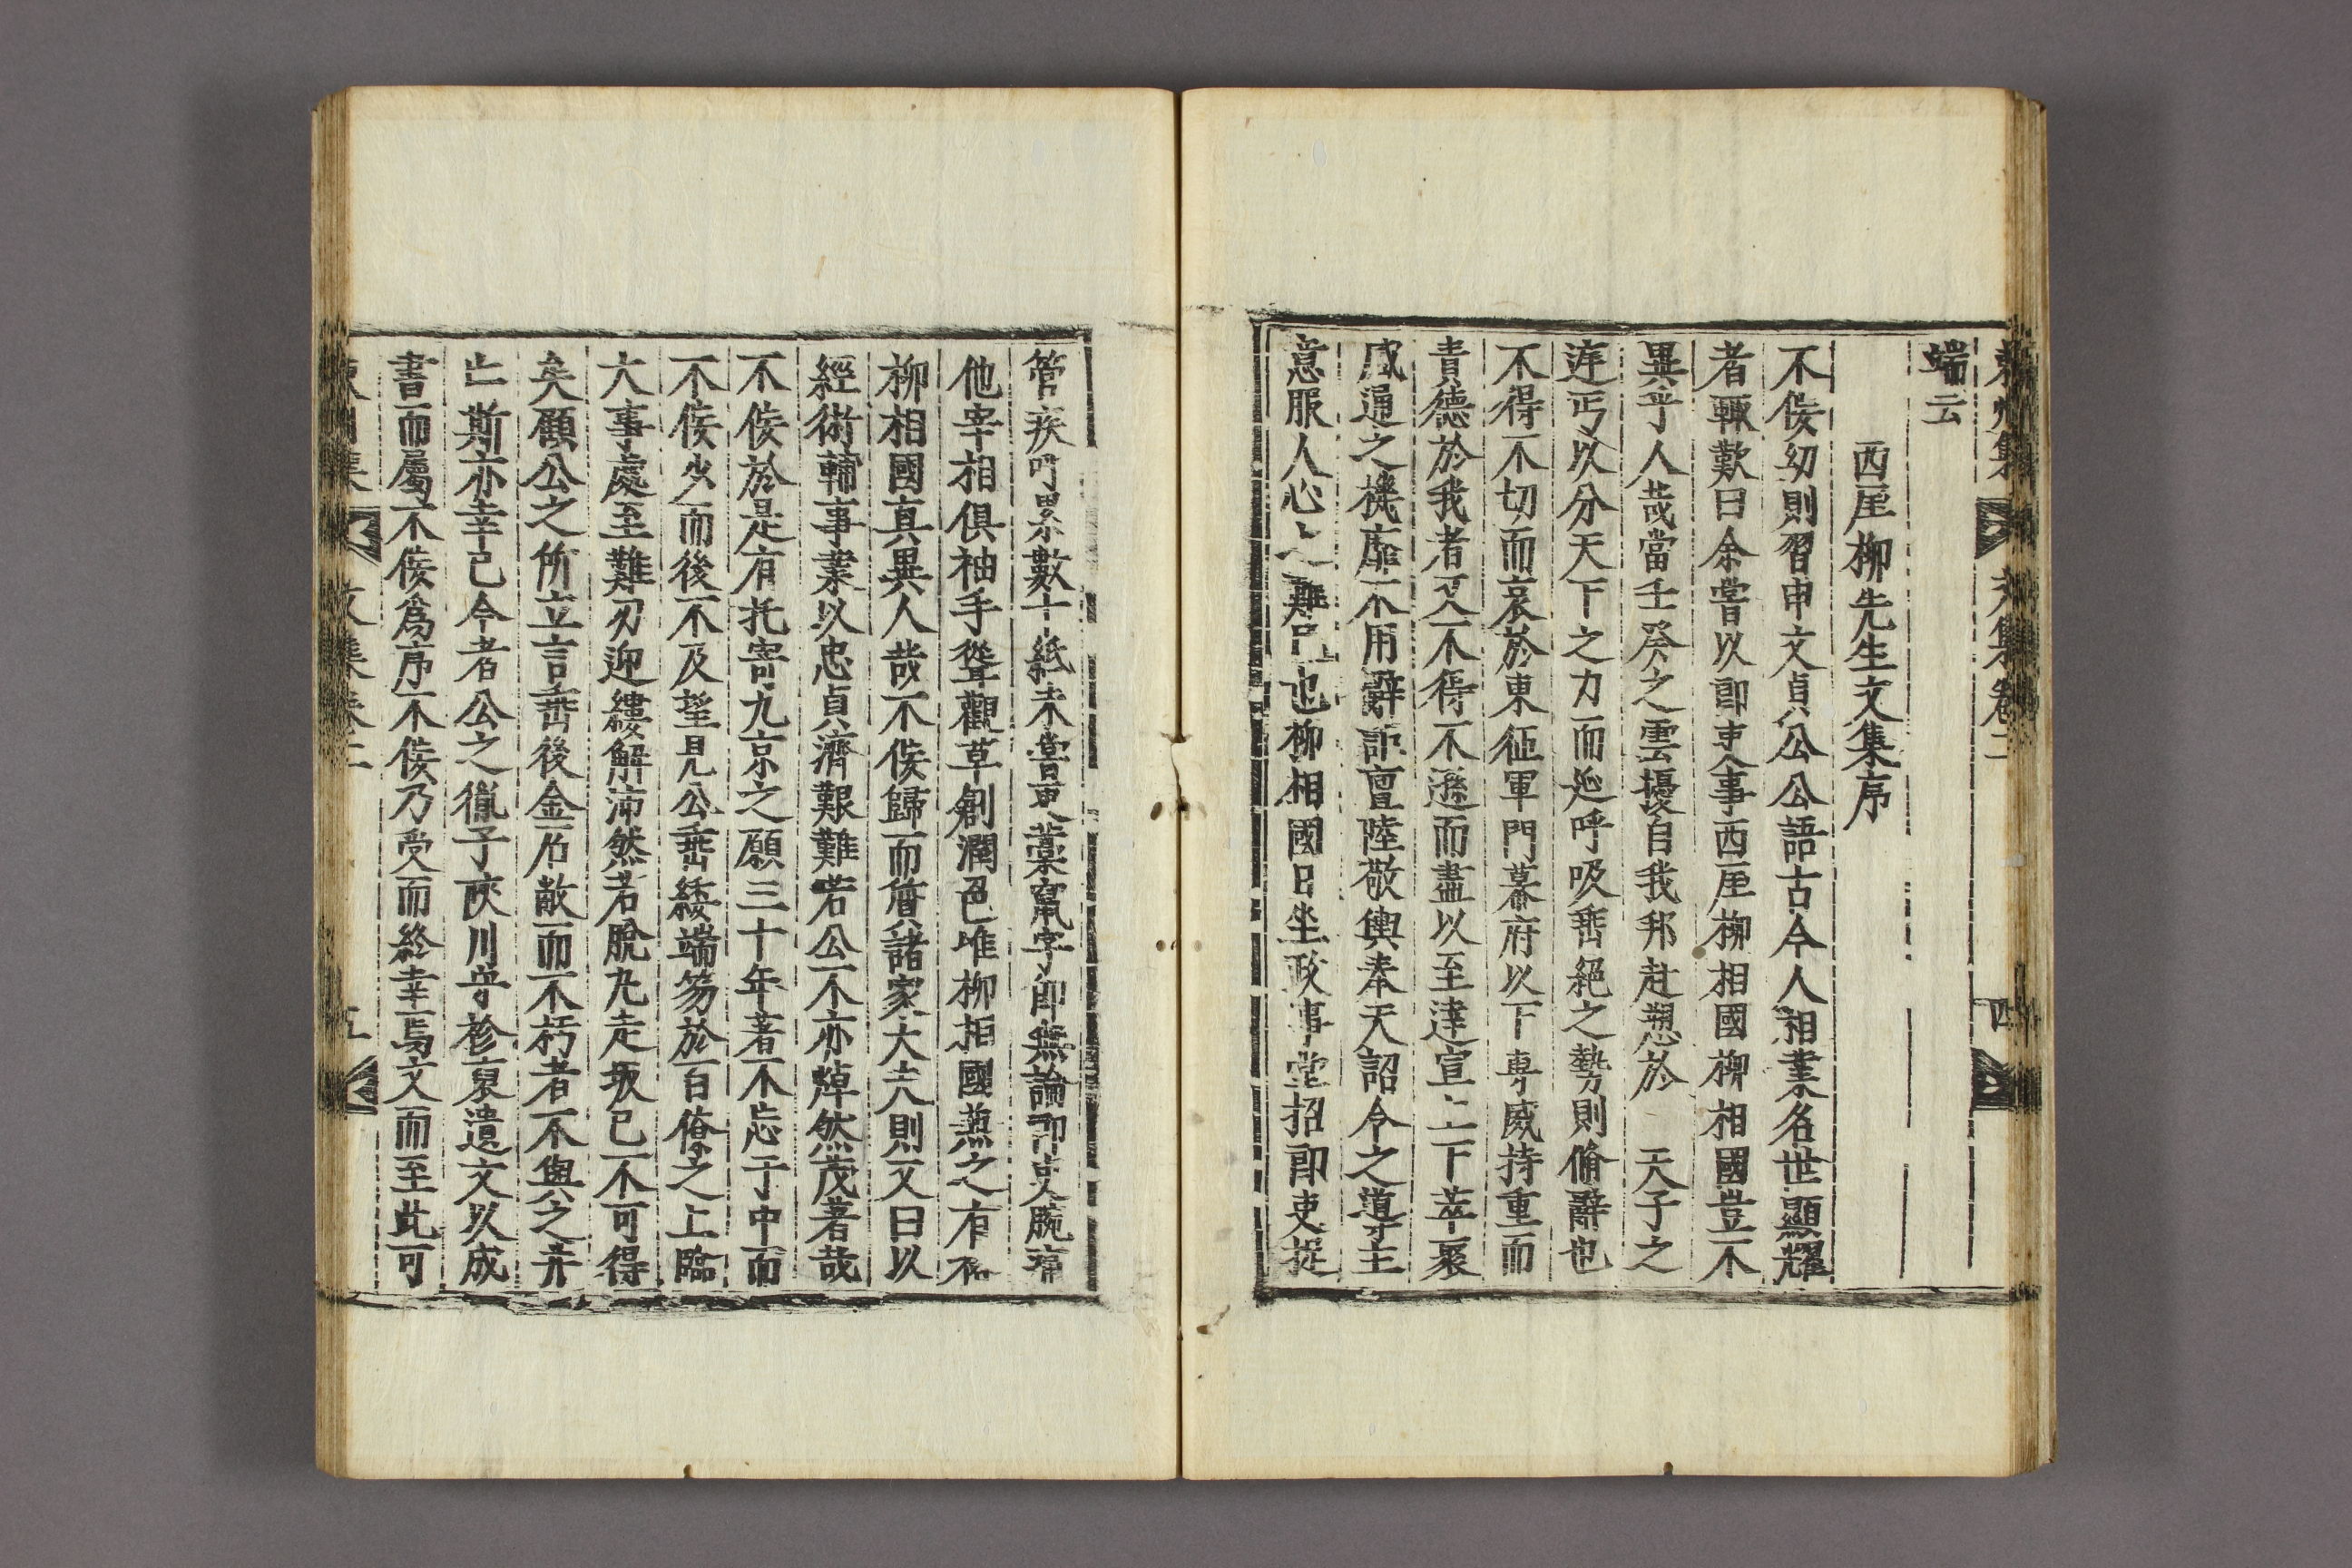 端云
西厓柳先生文集序
不佞幼則習申文貞公公語古今人相業名世顯耀
者輒歎曰余嘗以郎吏事西厓柳相國柳相國豈不
異乎人哉當壬癸之雲擾自我邦赴愬於 天子之
庭丐以分天下之力而延呼吸垂絕之勢則脩辭也
不得不切而哀於東征軍門幕府以下專威持重而
責德於我者又不得不遜而盡以至達宣上下萃聚
感通之機靡不用辭詎亶陸敬輿奉天詔令之導主
意服人心之難已也柳相國日坐政事堂招郎吏捉
管疾呼累數十紙未嘗更藁竄字卽無論郎吏腕痛
他宰相俱袖手聳觀草創潤色唯柳相國兼之有
柳相國真異人哉不佞歸而質諸家大夫則又曰以
經術輔事業以忠貞濟艱難若公不亦焯然茂著哉
不佞於是有托寄九京之願三十年著不忘于中而
不佞少而後不及望見公垂緌端笏於百僚之上臨
大事處至難刃迎縷解沛然若脫丸走坂已不可得
矣顧公之所立言垂後金石敝而不朽者不與之并
亡斯亦幸已今者公之徹子陜川守袗裒遺文以成
書而屬不佞爲序不佞乃受而終幸焉文而至此可
文集卷二